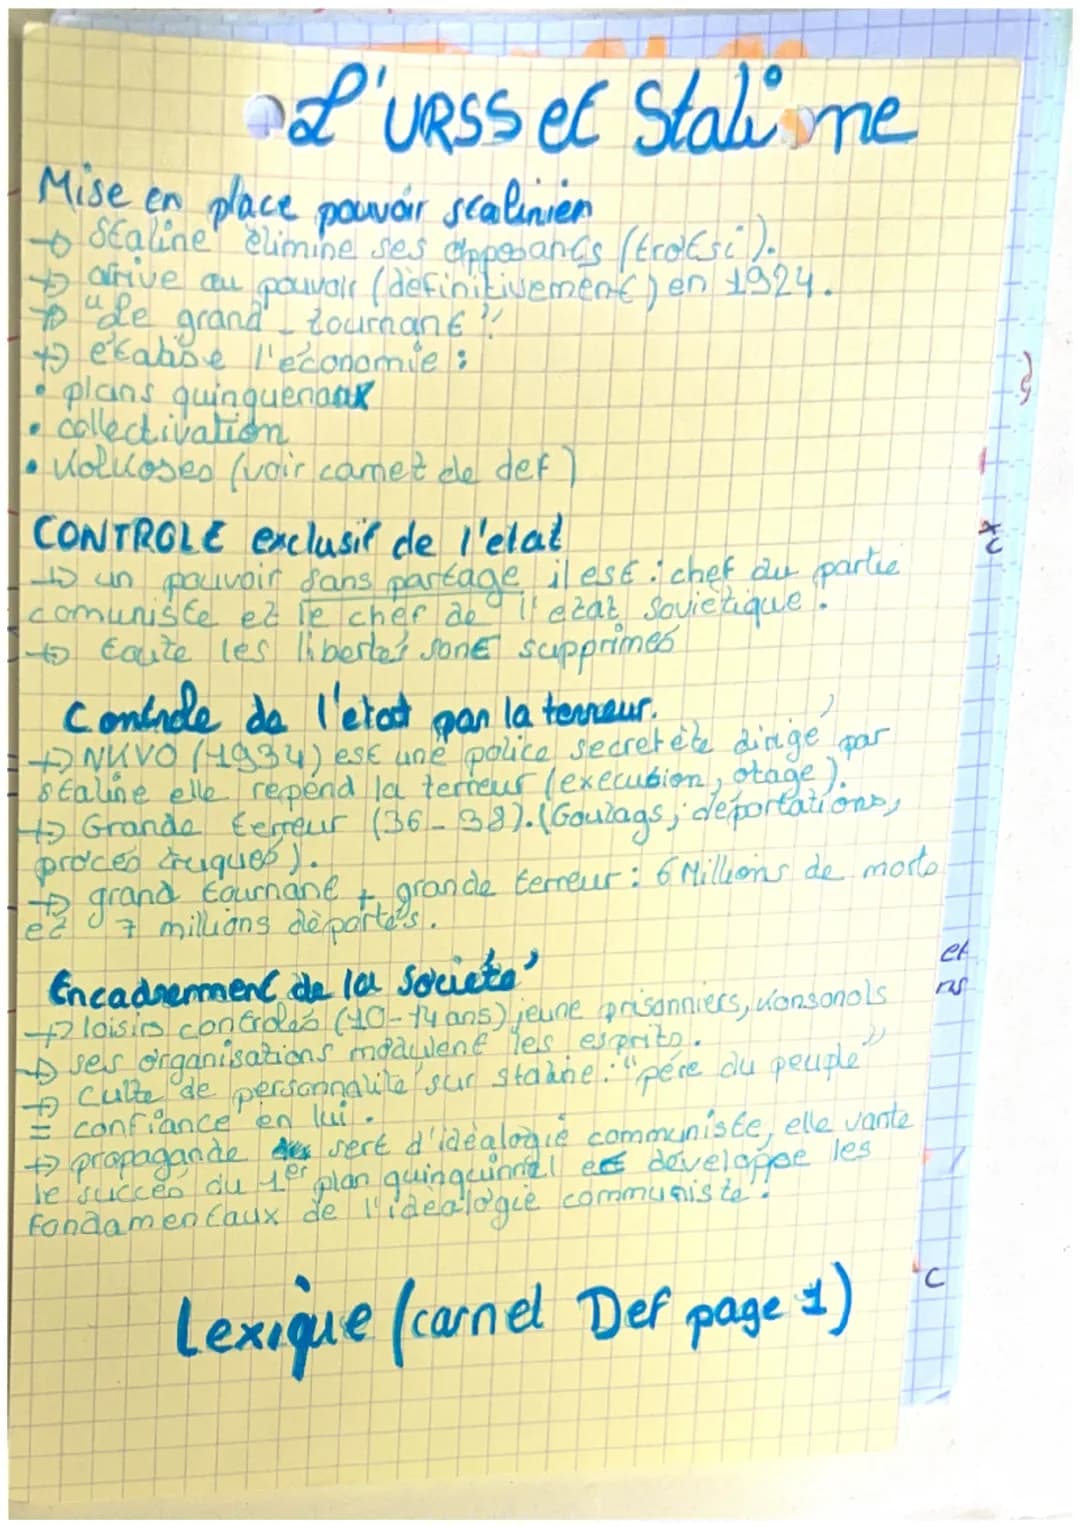 L'URSS et Staline
Mise en place pouvoir stalinien
→ Staline élimine ses opposants (trotsi).
→ arrive au pouvoir (définitivement) en 1924.
→ "le grand tournant"
→ étatise l'économie :
• plans quinquenaux
• collectivation
• Kolkoses (voir carnet de def)
CONTROLE exclusif de l'etat
→ un pouvoir sans partage il est : chef du partie
comuniste et le chef de l'etat soviétique.
→ toute les libertés sont supprimés
Controle de l'etat par la terreur.
→ NKVD (1934) est une police secretète dirigé par
staline elle repend la terreur (execution, otage).
→ Grande terreur (36-38). (Goulags ; déportations,
procés truqués).
→ grand tournant + grande terreur : 6 Millions de morts
et 7 millions déportés.
Encadrement de la Societé
→ loisirs controlés (10-14 ans) jeune prisonniers,
→ ses organisations les esprits.
→ Culte de personnalité sur staline : "pére du peuple"
= confiance en lui.
→ propagande sert d'idéalogie communiste, elle vante
le succés du 1er plan quinquinnel et développe les
fondamentaux de l'idéalogie communiste.
Lexique (carnet Def page 1)
et
ns
c